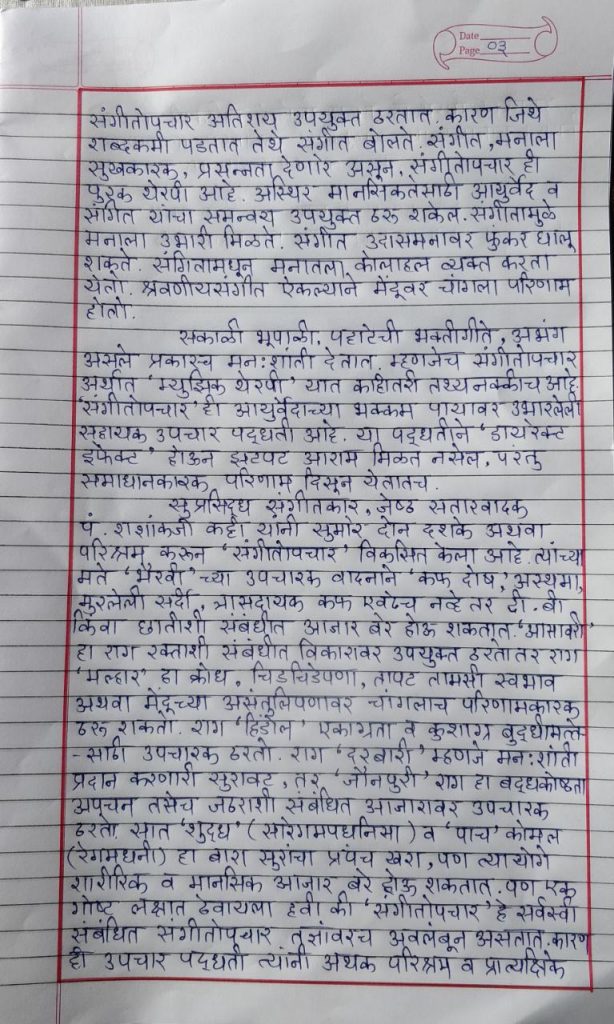 Date
Page 03
संगीतोपचार अतिशय उपयुक्त ठरतात. कारण जिथे
शब्दकमी पडतात तेथे संगीत बोलते. संगीत, मनाला
सुखकारक, प्रसन्नता देणारे असून, संगीतोपचार ही
पुरक थेरपी आहे. अस्थिर मानसिकतेसाठी आयुर्वेद व
संगित यांचा समन्वय उपयुक्त ठरू शकेल. संगीतामुळे
मनाला उभारी मिळते. संगीत उदासमनावर फुंकर घालू
शकते. संगितामधून मनातला कोलाहल व्यक्त करता
येतो. श्रवणीयसंगीत ऐकल्याने मेंदूवर चांगला परिणाम
होतो.
सकाळी भूपाळी, पहाटेची भक्तीगीते, अभंग
असले प्रकारच मन:शांती देतात. म्हणजेच संगीतोपचार
अर्थात 'म्युझिक थेरपी' यात काहीतरी तथ्य नक्कीच आहे.
'संगीतोपचार' ही आयुर्वेदाच्या भक्कम पायावर उभारलेली
सहायक उपचार पद्धती आहे. या पद्धतीने 'डायरेक्ट
इफेक्ट' होऊन झटपट आराम मिळत नसेल, परंतु
समाधानकारक परिणाम दिसून येतातच.
सुप्रसिद्ध संगीतकार, जेष्ठ सतारवादक
पं. शशांकजी कट्टी यांनी सुमारे दोन दशके अथवा
परिश्रम करून 'संगीतोपचार' विकसित केला आहे. त्यांच्या
मते 'भैरवी' च्या उपचारक वादनाने 'कफ दोष, अस्थमा,
मुरलेली सर्दी, त्रासदायक कफ एवढेच नव्हे तर टी. बी
किंवा छातीशी संबंधीत आजार बरे होऊ शकतात. 'आसावरी'
हा राग रक्ताशी संबंधीत विकारावर उपयुक्त ठरतो तर राग
'मल्हार' हा क्रोध, चिडचिडेपणा, तापट तामसी स्वभाव
अथवा मेंदूच्या असंतुलिपणावर चांगलाच परिणामकारक
ठरू शकतो. राग 'हिंडोल' एकाग्रता व कुशाग्र बुद्धीमत्ते
-साठी उपचारक ठरतो. राग 'दरबारी' म्हणजे मन:शांती
प्रदान करणारी सुरावट, तर 'जौनपुरी' राग हा बद्धकोष्ठता
अपचन तसेच जठराशी संबंधित आजारावर उपचारक
ठरतो. सात 'शुद्ध' (सारेगमपधनिसा) व 'पाच' कोमल
(रेगमधनी) हा बारा सुरांचा प्रपंच खरा, पण त्यायोगे
शारीरिक व मानसिक आजार बरे होऊ शकतात. पण एक
गोष्ट लक्षात ठेवायला हवी की 'संगीतोपचार' हे सर्वस्वी
संबंधित संगीतोपचार तज्ञांवरच अवलंबून असतात. कारण
ही उपचार पद्धती त्यांनी अथक परिश्रम व प्रात्यक्षिके